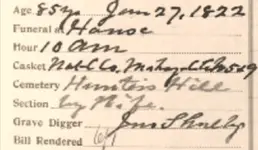 Age. 85 yrs Jan 27, 1822
Funeral at House
Hour 10 am
Casket Natl Co. Mahogany 549
Cemetery Hunters Hill
Section by Wife.
Grave Digger Jno Shelby
Bill Rendered